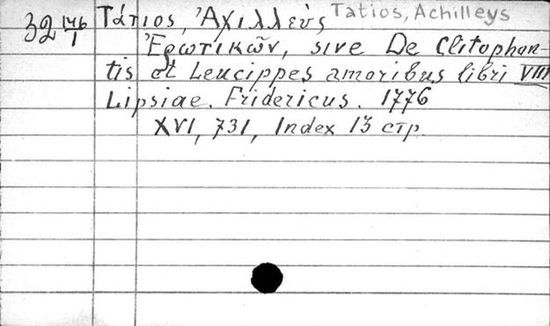 32 146/1 Τάτιος, Ἀχιλλεὺς Tatios, Achilleys
Ἐρωτικῶν, sive De Clitophon-
tis et Leucippes amoribus libri VIII
Lipsiae. Fridericus. 1776
XVI, 731, Index 13 стр.